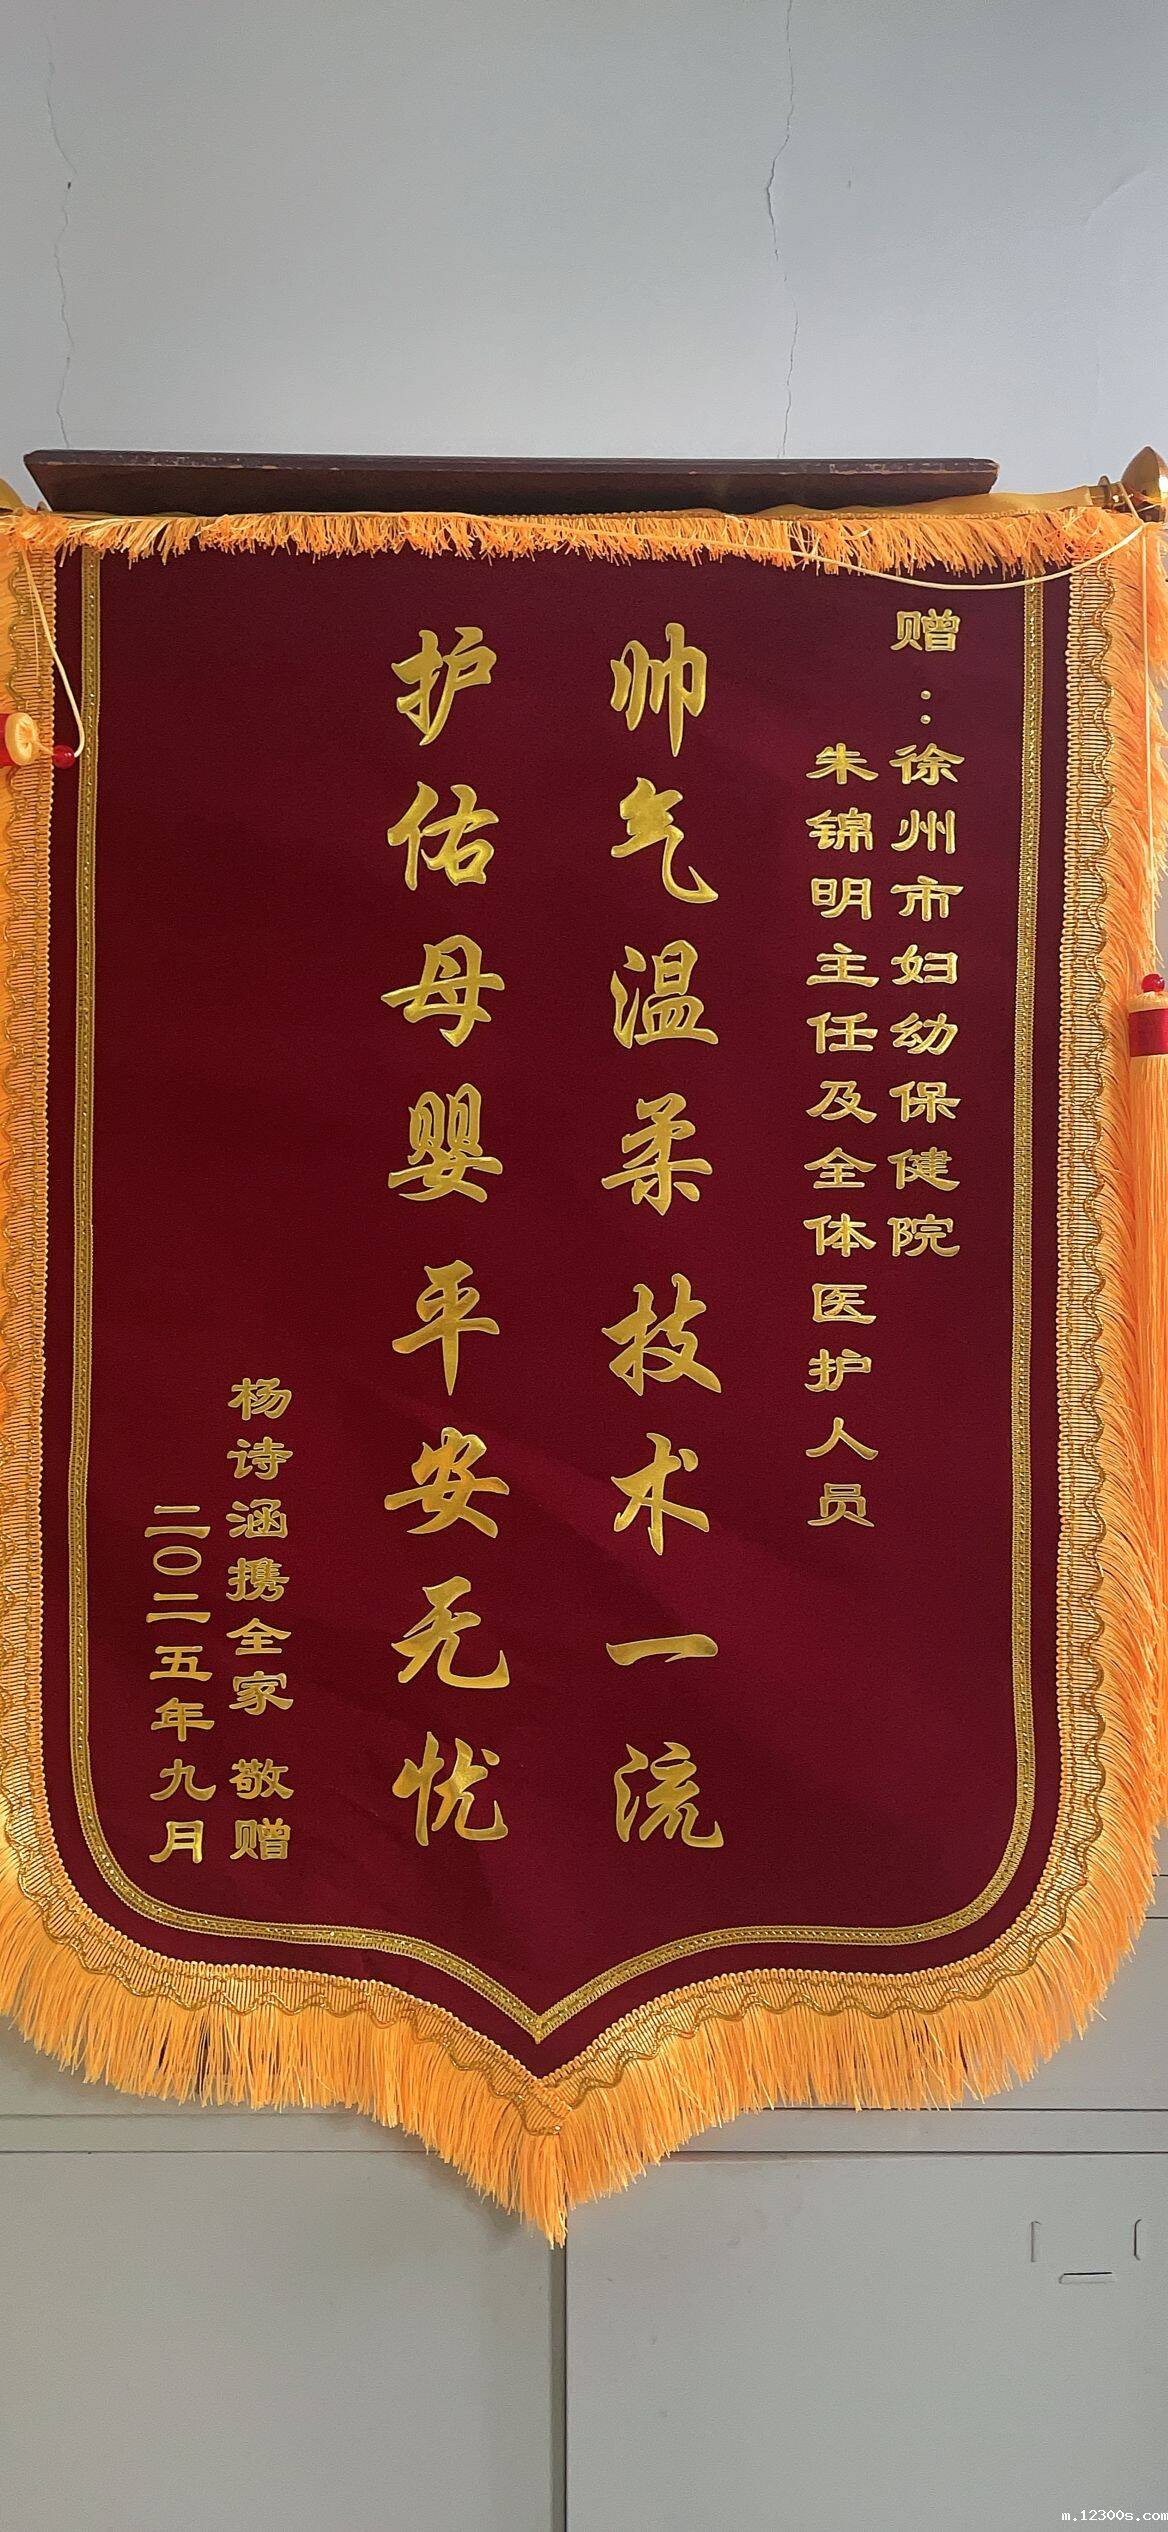 赠：徐州市妇幼保健院
朱锦明主任及全体医护人员
帅气温柔技术一流
护佑母婴平安无忧
杨诗涵携全家 敬赠
二〇二五年九月
m.12300s.com